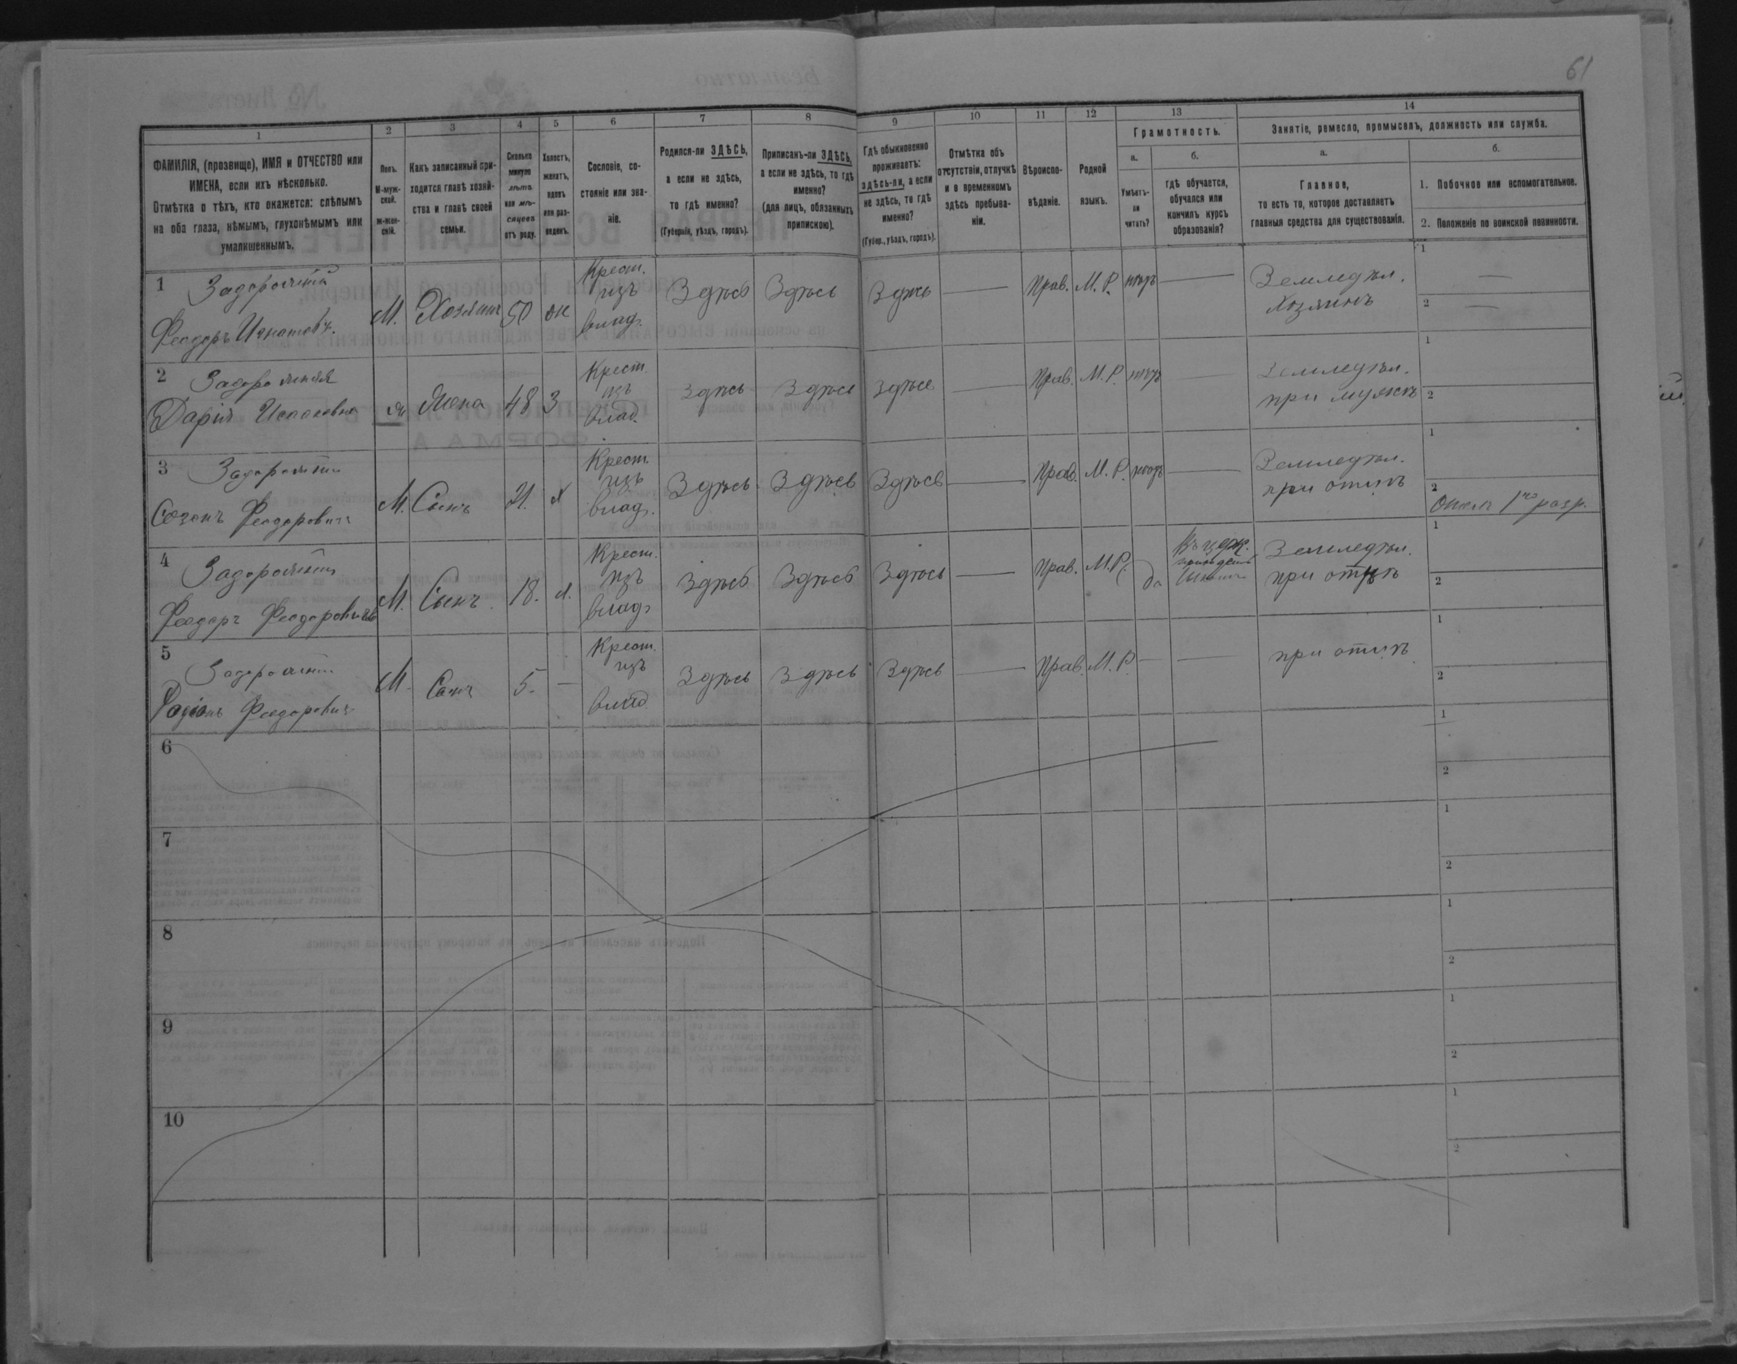 61
1
2
3
4
5
6
7
8
9
10
11
12
13
14
ФАМИЛІЯ, (прозвище), ИМЯ и ОТЧЕСТВО или
ИМЕНА, если ихъ нѣсколько.
Отмѣтка о тѣхъ, кто окажется: слѣпымъ
на оба глаза, нѣмымъ, глухонѣмымъ или
умалишеннымъ.
Полъ.
М-муж-
ской.
Ж-жен-
скій.
Какъ записанный при-
ходится главѣ хозяй-
ства и главѣ своей
семьи.
Сколько
минуло
лѣтъ
или мѣ-
сяцевъ
отъ роду.
Холостъ,
женатъ,
вдовъ
или раз-
веденъ.
Сословіе, со-
стояніе или зва-
ніе.
Родился-ли ЗДѢСЬ,
а если не здѣсь,
то гдѣ именно?
(Губернія, уѣздъ, городъ).
Приписанъ-ли ЗДѢСЬ,
а если не здѣсь, то гдѣ
именно?
(для лицъ, обязанныхъ
припискою).
Гдѣ обыкновенно
проживаетъ:
здѣсь-ли, а если
не здѣсь, то гдѣ
именно?
(Губер., уѣздъ, городъ).
Отмѣтка объ
отсутствіи, отлучкѣ
и о временномъ
здѣсь пребыва-
ніи.
Вѣроиспо-
вѣданіе.
Родной
языкъ.
Грамотность.
а.
Умѣетъ-
ли
читать?
б.
гдѣ обучается,
обучался или
кончилъ курсъ
образованія?
Занятіе, ремесло, промыселъ, должность или служба.
а.
Главное,
то есть то, которое доставляетъ
главныя средства для существованія.
б.
1. Побочное или вспомогательное.
2. Положеніе по воинской повинности.
1 Задорожній
Феодоръ Игнатовъ.
М. Хозяинъ 50 ж
Крест.
изъ
влад.
Здѣсь Здѣсь Здѣсь — Прав. М. Р. нѣтъ —
Земледѣл.
Хозяинъ
1 —
2 —
2 Задорожняя
Дарія
ж жена 48 З
Крест.
изъ
влад.
Здѣсь Здѣсь Здѣсь — Прав. М. Р. нѣтъ —
Земледѣл.
при мужѣ
1
2
3 Задорожній
Созонъ Феодоровичъ
М. Сынъ 21. х
Крест.
изъ
влад.
Здѣсь Здѣсь Здѣсь — Прав. М. Р. нѣтъ —
Земледѣл.
при отцѣ
1
2
1го разр.
4 Задорожній
Феодоръ Феодоровичъ
М. Сынъ 18. х.
Крест.
изъ
влад.
Здѣсь Здѣсь Здѣсь — Прав. М. Р. да
Въ церк.
приходск.
Земледѣл.
при отцѣ
1
2
5 Задорожній
Феодоровичъ
М. Сынъ 5. —
Крест.
изъ
влад
Здѣсь Здѣсь Здѣсь — Прав. М. Р. — —
при отцѣ
1
2
6
1
2
7
1
2
8
1
2
9
1
2
10
1
2